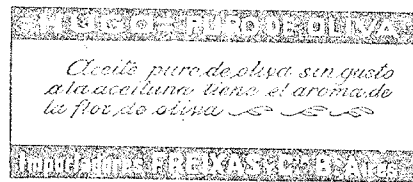 HUGO = PURO DE OLIVA
Aceite puro de oliva sin gusto
a la aceituna tiene el aroma de
la flor de oliva
Importadores FREIXAS y Cª Bˢ Aires